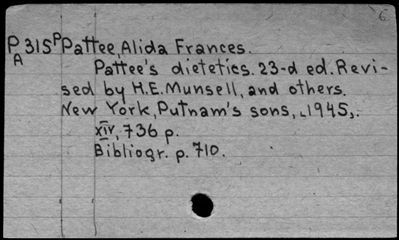 6
P315P Pattee, Alida Frances.
A Pattee's dietetics. 23-d ed. Revi-
sed by H.E. Munsell, and others.
New York, Putnam's sons, [1945].
XIV, 736 p.
Bibliogr. p. 710.